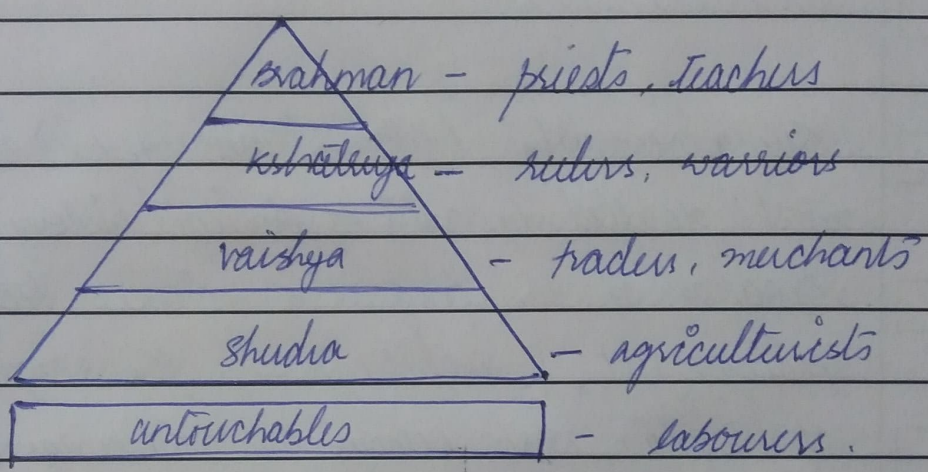 Brahman - priests, teachers
kshatriya - rulers, warriors
vaishya - traders, merchants
Shudra - agriculturists
untouchables - labourers.